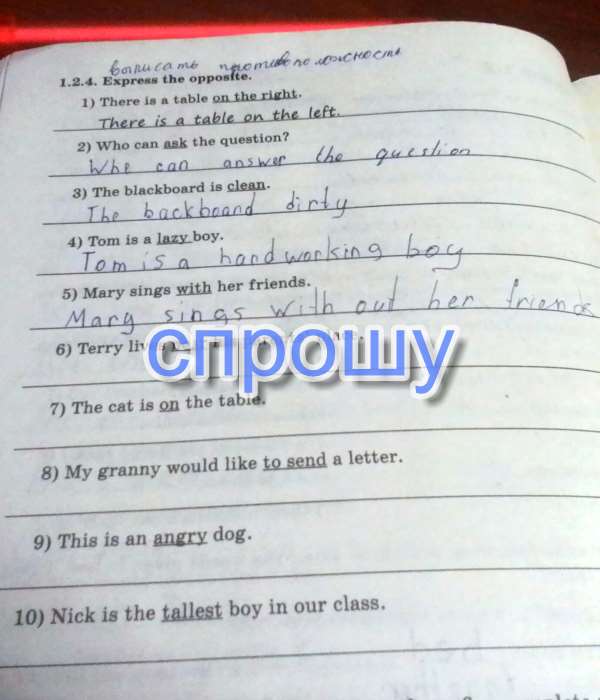 вписать противоположность
1.2.4. Express the opposite.
1) There is a table on the right.
There is a table on the left.
2) Who can ask the question?
Whe can answer the question
3) The blackboard is clean.
The backboand dirty
4) Tom is a lazy boy.
Tom is a handworking boy
5) Mary sings with her friends.
Mary sings with out her friends
6) Terry
спрошу
7) The cat is on the table.
8) My granny would like to send a letter.
9) This is an angry dog.
10) Nick is the tallest boy in our class.